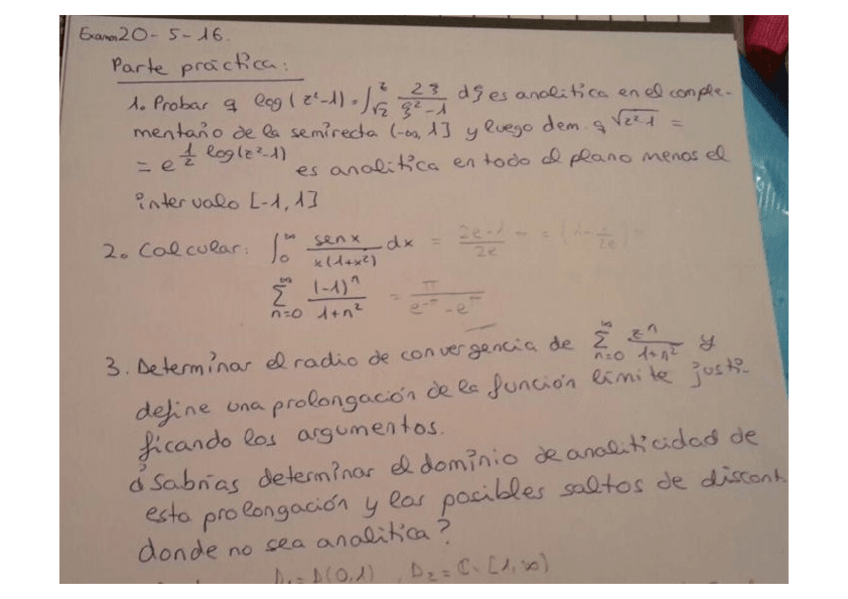 Examen 20-5-16.
Parte práctica:
1. Probar q log(z²-1) = ∫_{√2}^{z} 2ξ/(ξ²-1) dξ es analitica en el comple-
mentario de la semirecta (-∞, 1] y luego dem. q √z²-1 =
= e^{1/2 log(z²-1)} es analitica en todo el plano menos el
intervalo [-1, 1]
2. Calcular: ∫_0^∞ senx/(x(1+x²)) dx = (2e-1)/2e
∑_{n=0}^∞ (-1)^n/(1+n²) = π/(e^{-π} - e^{π})
3. Determinar el radio de convergencia de ∑_{n=0}^∞ z^n/(1+n²) y
define una prolongación de la función límite justi-
ficando los argumentos.
¿Sabrías determinar el dominio de analiticidad de
esta prolongación y los posibles saltos de discont.
donde no sea analitica?
D₁ = D(0,1), D₂ = ℂ\[1,∞)